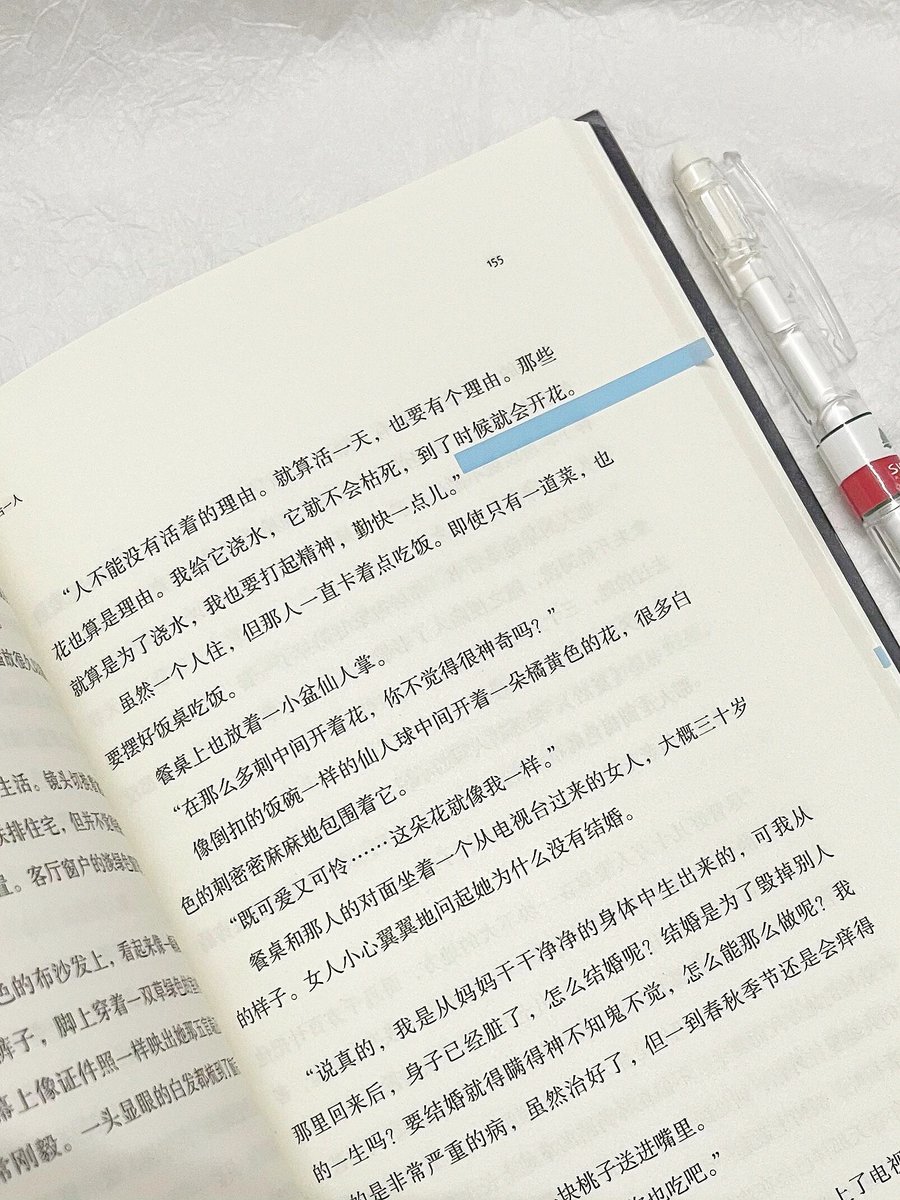 生活。镜头切换
排住宅，但并不
置。客厅窗户的
色的布沙发上，看起来像一
裤子，脚上穿着一双草绿色
幕上像证件照一样映出她那五官
常刚毅。一头显眼的白发都梳到了
155
“人不能没有活着的理由。就算活一天，也要有个理由。那些
花也算是理由。我给它浇水，它就不会枯死，到了时候就会开花。
就算是为了浇水，我也要打起精神，勤快一点儿。”
虽然一个人住，但那人一直卡着点吃饭。即使只有一道菜，也
要摆好饭桌吃饭。
餐桌上也放着一小盆仙人掌。
“在那么多刺中间开着花，你不觉得很神奇吗？”
像倒扣的饭碗一样的仙人球中间开着一朵橘黄色的花，很多白
色的刺密密麻麻地包围着它。
“既可爱又可怜……这朵花就像我一样。”
餐桌和那人的对面坐着一个从电视台过来的女人，大概三十岁
的样子。女人小心翼翼地问起她为什么没有结婚。
“说真的，我是从妈妈干干净净的身体中生出来的，可我从
那里回来后，身子已经脏了，怎么结婚呢？结婚是为了毁掉别人
的一生吗？要结婚就得瞒得神不知鬼不觉，怎么能那么做呢？我
的是非常严重的病，虽然治好了，但一到春秋季节还是会痒得
块桃子送进嘴里。
也吃吧。”
上了电视